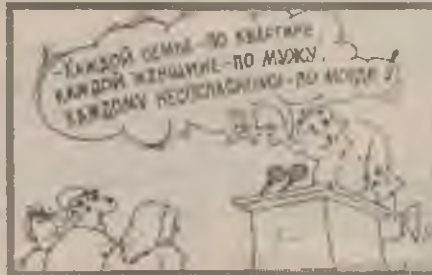 -КАЖДОЙ СЕМЬЕ-ПО КВАРТИРЕ,
КАЖДОЙ ЖЕНЩИНЕ-ПО МУЖУ,
КАЖДОМУ -ПО МОРДЕ!